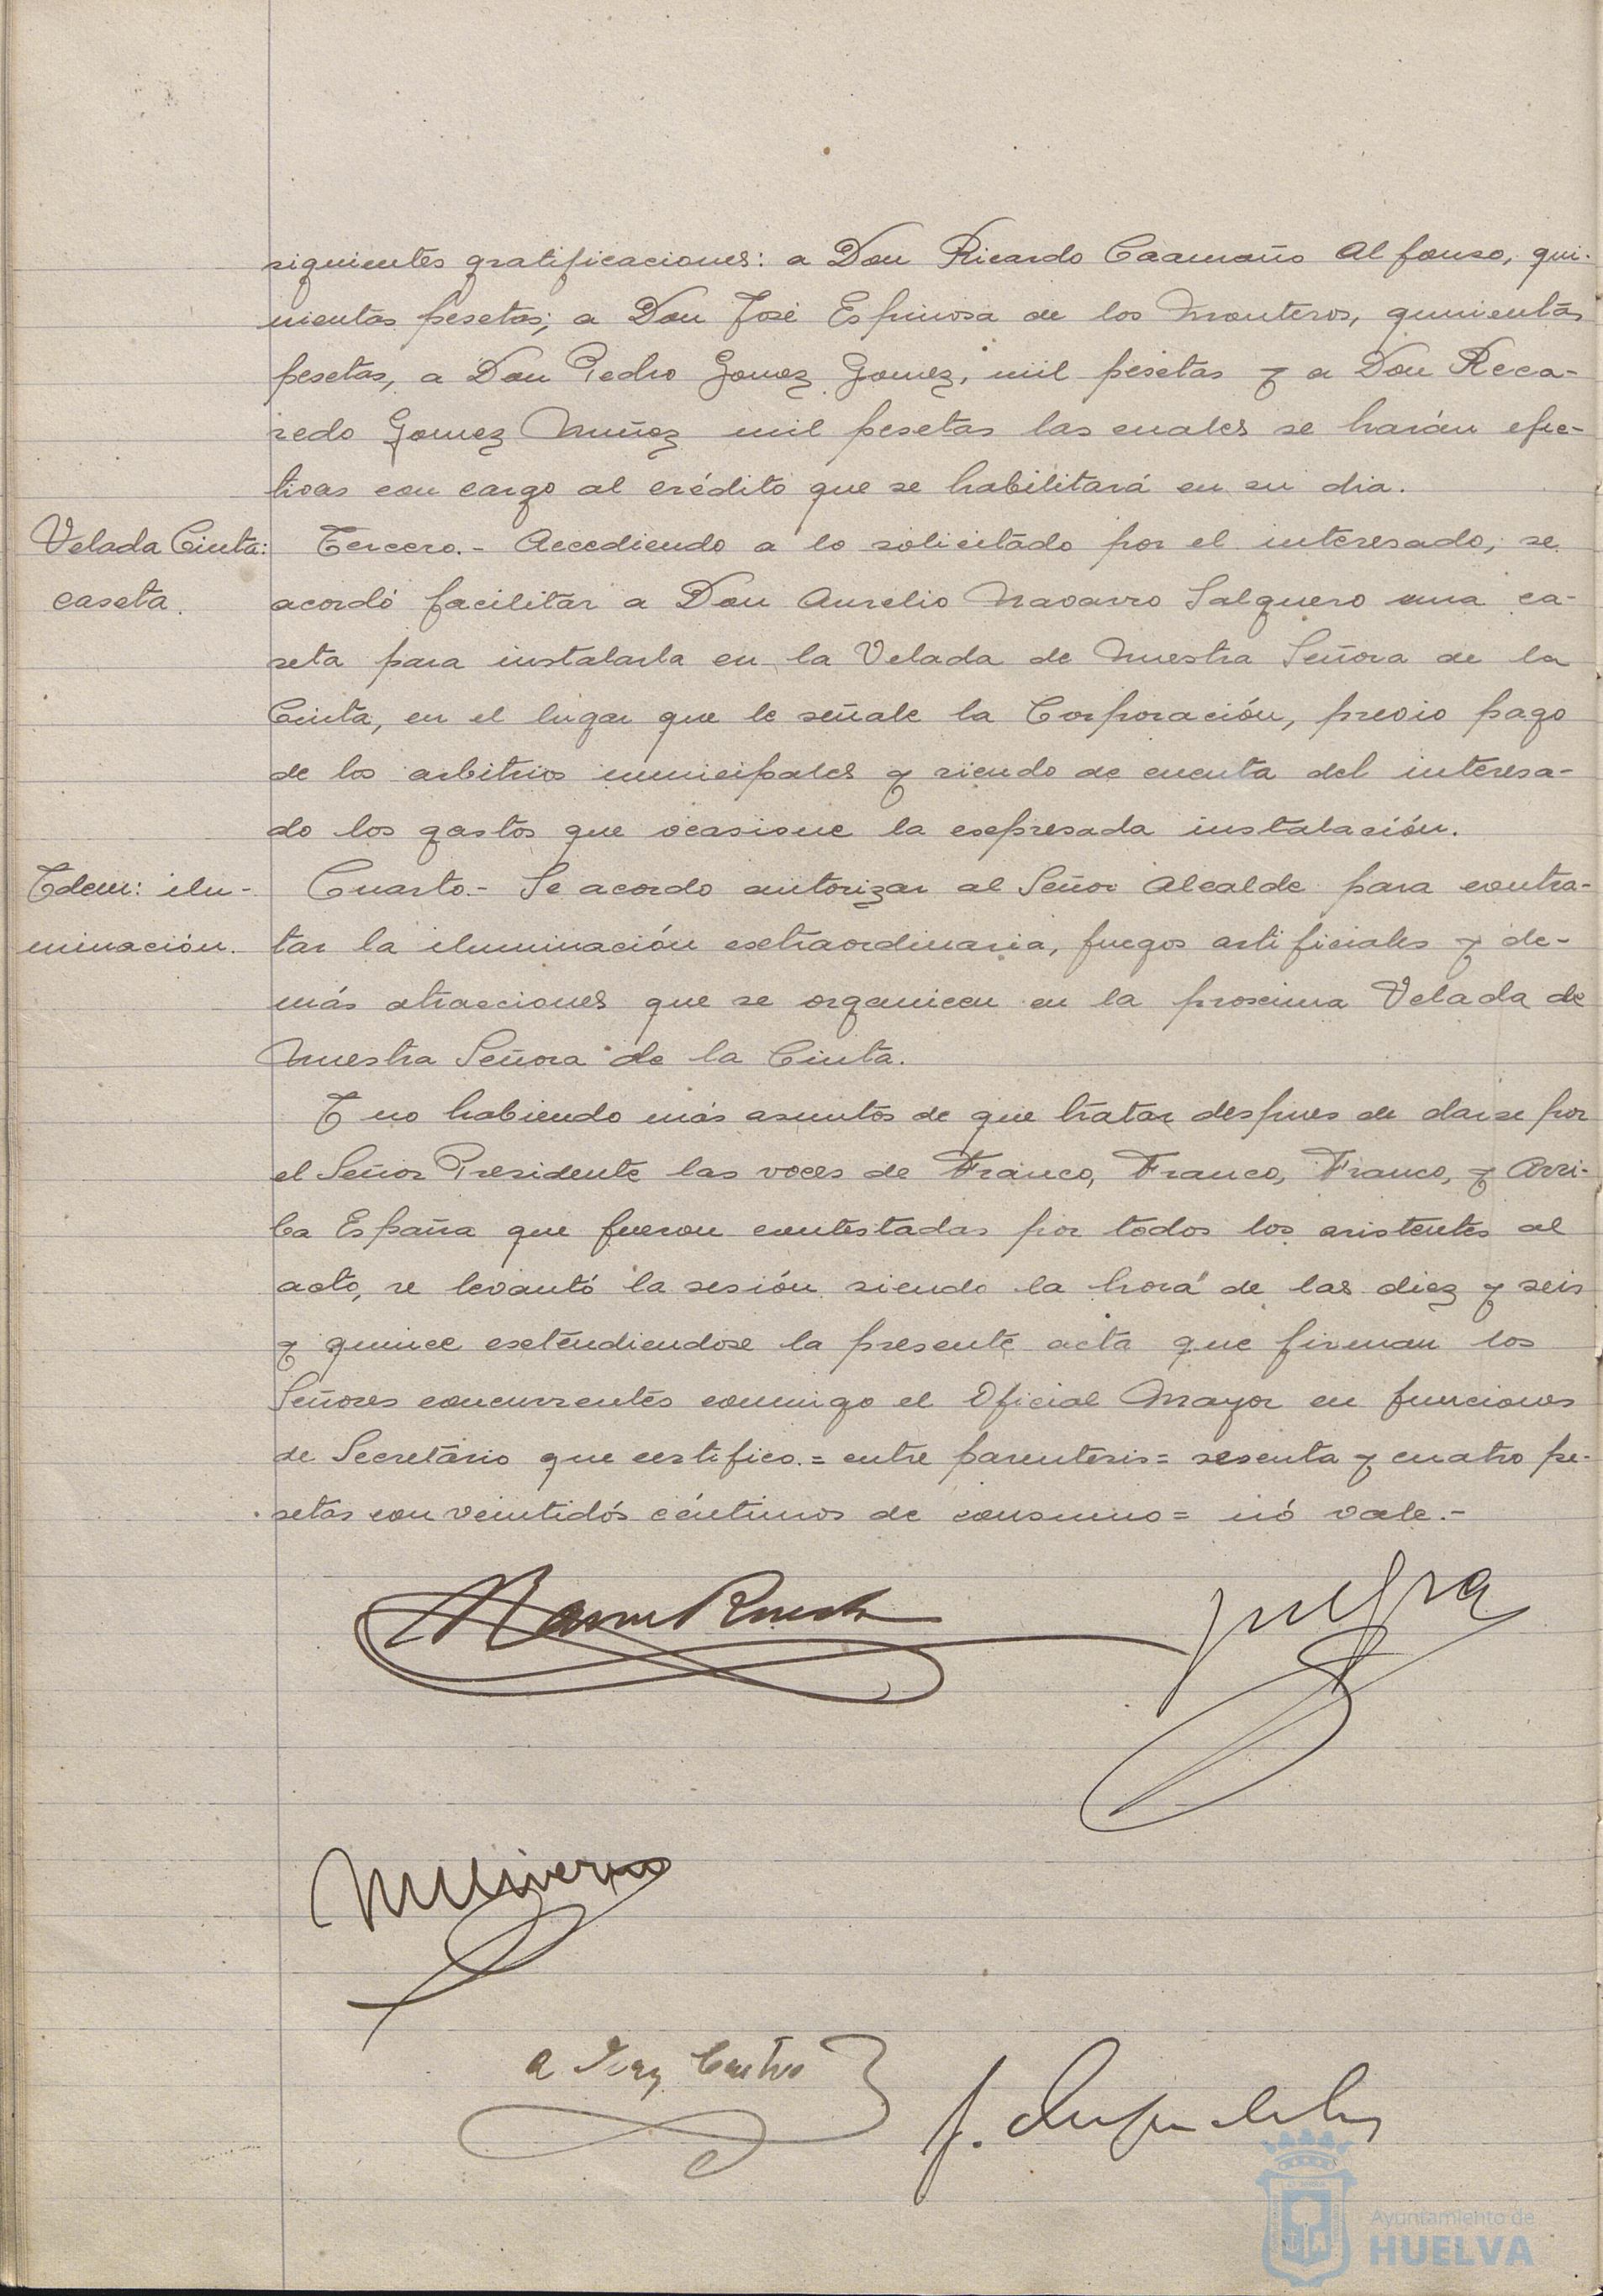 siguientes gratificaciones: a Don Ricardo Caamaño Alfonso, qui-
nientas pesetas; a Don José Espinosa de los Monteros, quinientas
pesetas, a Don Pedro Gomez Gomez, mil pesetas y a Don Reca-
redo Gomez Muñoz mil pesetas las cuales se harán efec-
tivas con cargo al crédito que se habilitará en su dia.
Velada Cinta:
caseta.
Tercero.- Accediendo a lo solicitado por el interesado, se
acordó facilitar a Don Aurelio Navarro Salguero una ca-
seta para instalarla en la Velada de Nuestra Señora de la
Cinta, en el lugar que le señale la Corporación, previo pago
de los arbitrios municipales y siendo de cuenta del interesa-
do los gastos que ocasione la expresada instalación.
Idem: ilu-
minación.
Cuarto.- Se acordo autorizar al Señor Alcalde para contra-
tar la iluminación extraordinaria, fuegos artificiales y de-
más atracciones que se organicen en la proxima Velada de
Nuestra Señora de la Cinta.
Y no habiendo más asuntos de que tratar despues de darse por
el Señor Presidente las voces de Franco, Franco, Franco, y Arri-
ba España que fueron contestadas por todos los asistentes al
acto, se levantó la sesión siendo la hora de las diez y seis
y quince extendiendose la presente acta que firman los
Señores concurrentes conmigo el Oficial Mayor en funciones
de Secretario que certifico.= entre parentesis= sesenta y cuatro pe-
setas con veintidós céntimos de consumo= nó vale.-
Ayuntamiento de
HUELVA